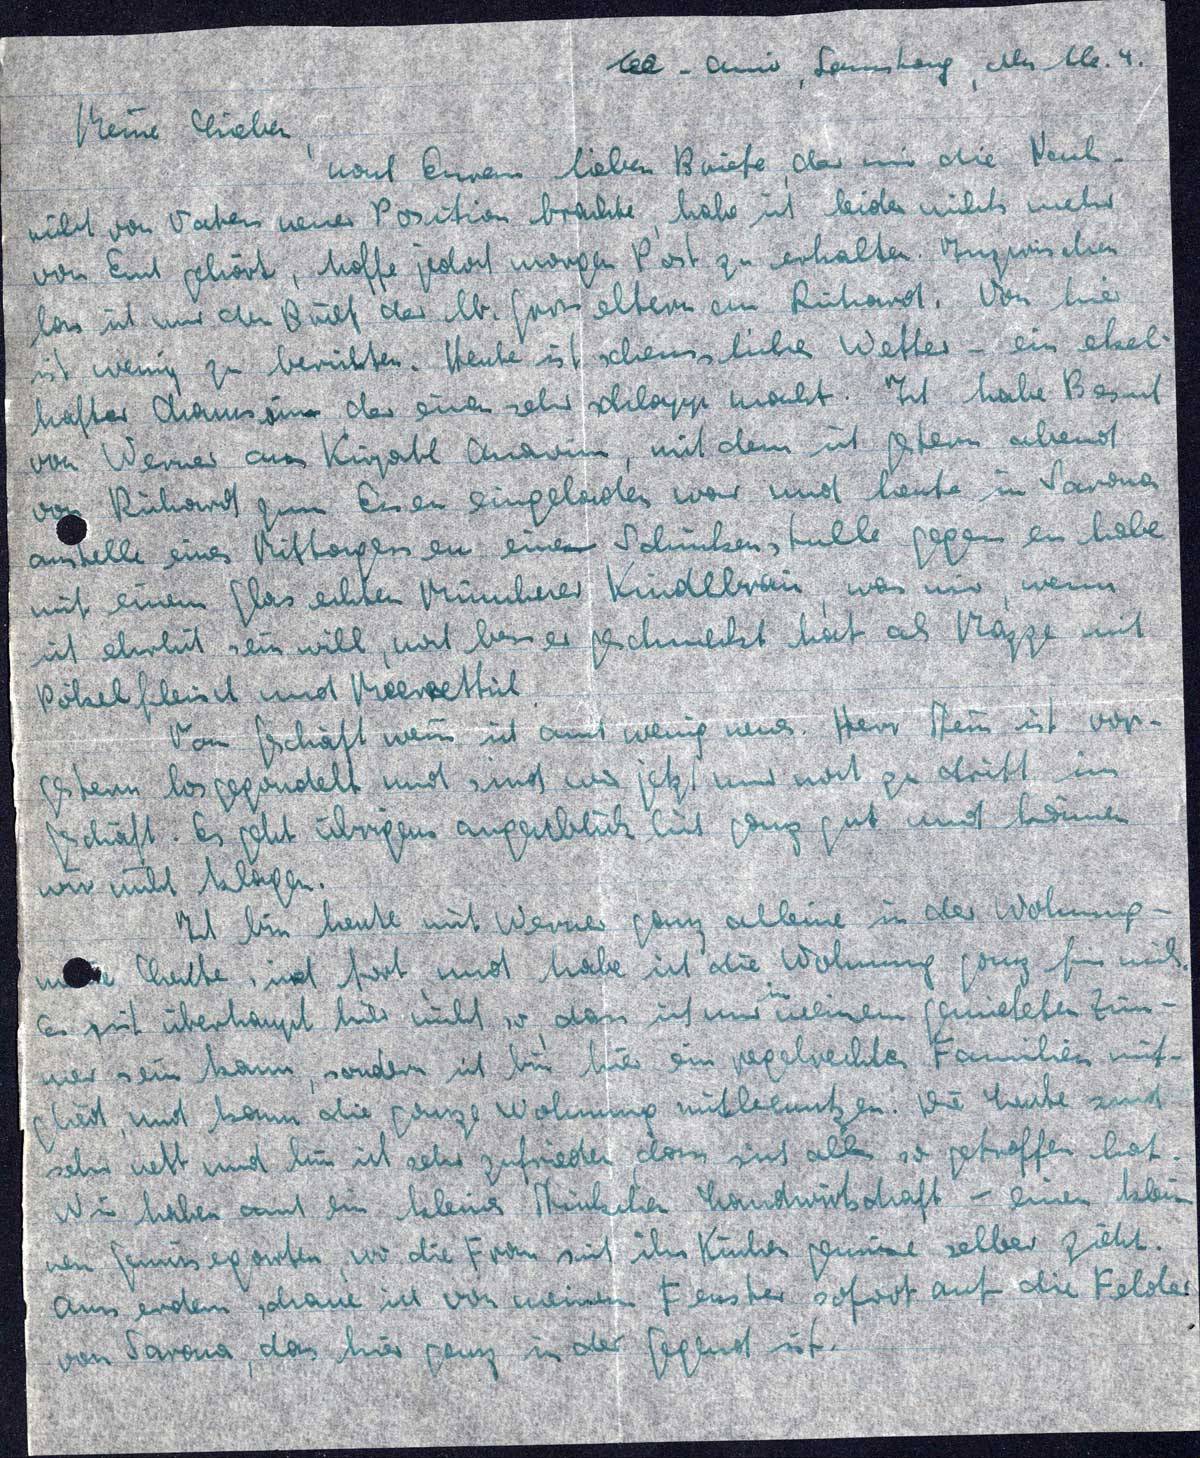 Tel-Aviv, Samstag, den 16. 4.
Meine Lieben,
nach Eurem lieben Briefe, der mir die Nach-
richt von Vaters neuer Position brachte, habe ich leider nichts mehr
von Euch gehört, hoffe jedoch morgen Post zu erhalten. Inzwischen
las ich nur den Brief der lb. Grosseltern an Richard. Von hier
ist wenig zu berichten. Heute ist scheussliches Wetter – ein ekel-
hafter Chamsin der einen sehr schlapp macht. Ich habe Besuch
von Werner aus Kirjath Anavim, mit dem ich gestern abend
von Richard zum Essen eingeladen war und heute in Sarona
anstelle eines Mittagessens eine Schinkenstulle gegessen habe
mit einem Glas echten Münchener Kindlbräu, was mir, wenn
ich ehrlich sein will, noch besser geschmeckt hat als Mazze mit
Pökelfleisch und Meerrettich.
Vom Geschäft weiss ich auch wenig neues. Herr Stein ist vor-
gestern losgegondelt und sind wir jetzt nur noch zu dritt im
Geschäft. Es geht übrigens augenblicklich ganz gut und können
wir nicht klagen.
Ich bin heute mit Werner ganz alleine in der Wohnung –
meine Leute sind fort und habe ich die Wohnung ganz für mich.
Es ist überhaupt hier nicht so, dass ich nur in meinem gemieteten Zim-
mer sein kann, sondern ich bin hier ein regelrechtes Familienmit-
glied, und kann die ganze Wohnung mitbenutzen. Die Leute sind
sehr nett und bin ich sehr zufrieden, dass sich alles so getroffen hat.
Wir haben auch ein kleines Stückchen Landwirtschaft – einen klei-
nen Gemüsegarten, wo die Frau sich ihr Küchengemüse selber zieht.
Ausserdem schaue ich von meinem Fenster sofort auf die Felder
von Sarona, das hier ganz in der Gegend ist.